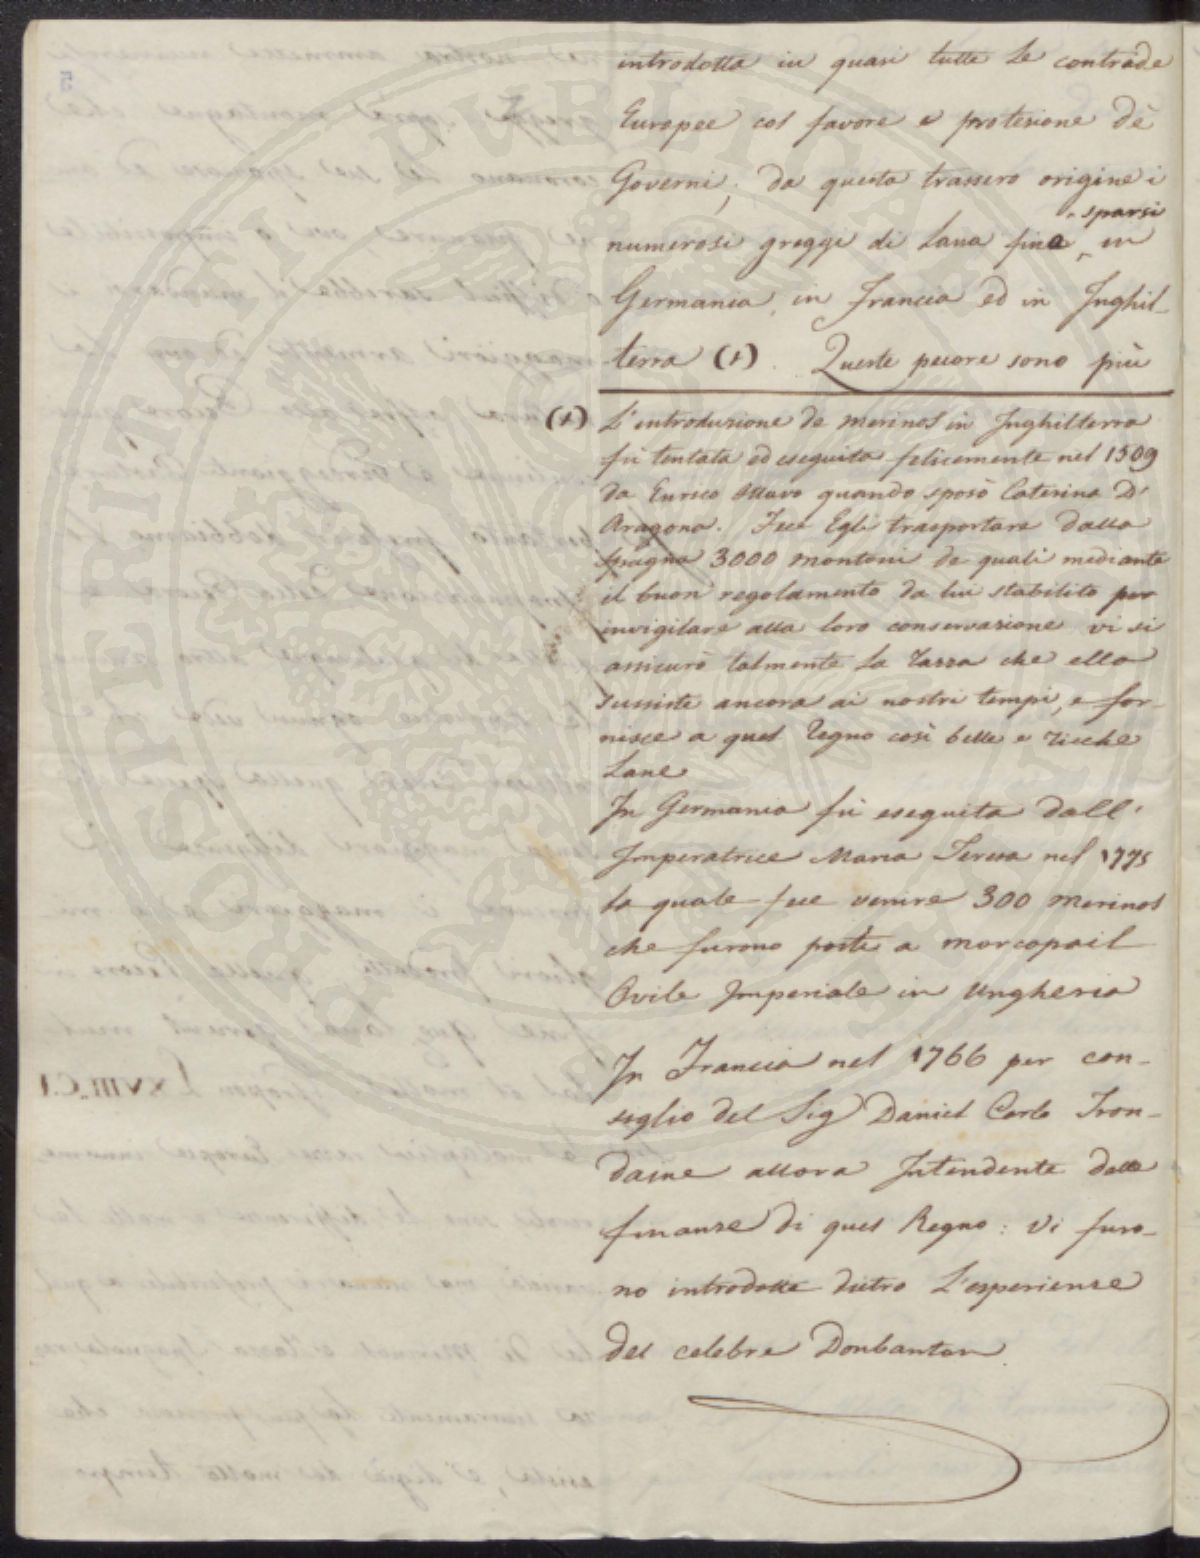 introdotta in quasi tutte le contrade
Europee col favore e protezione de'
Governi, da questa trassero origine i
sparsi
numerosi greggi di Lana fina, in
Germania, in Francia ed in Inghil-
terra (1). Queste pecore sono più
(1) L'introduzione de merinos in Inghilterra
fù tentata ed eseguita felicemente nel 1509
da Enrico Ottavo quando sposò Caterina D'
Aragona. Fece Egli trasportare dalla
Spagna 3000 montoni de quali mediante
il buon regolamento da lui stabilito per
invigilare alla loro conservazione vi si
assicurò talmente la razza che ella
sussiste ancora ai nostri tempi, e for-
nisce a quel Regno così belle e ricche
Lane
In Germania fù eseguita dall'
Imperatrice Maria Teresa nel 1775
la quale fece venire 300 merinos
che furono posti a morcopail
Ovile Imperiale in Ungheria
In Francia nel 1766 per con-
seglio del Sig Daniel Carlo Tron-
daine allora Intendente delle
finanze di quel Regno: Vi furo-
no introdotte dietro L'esperienze
del celebre Donbanton